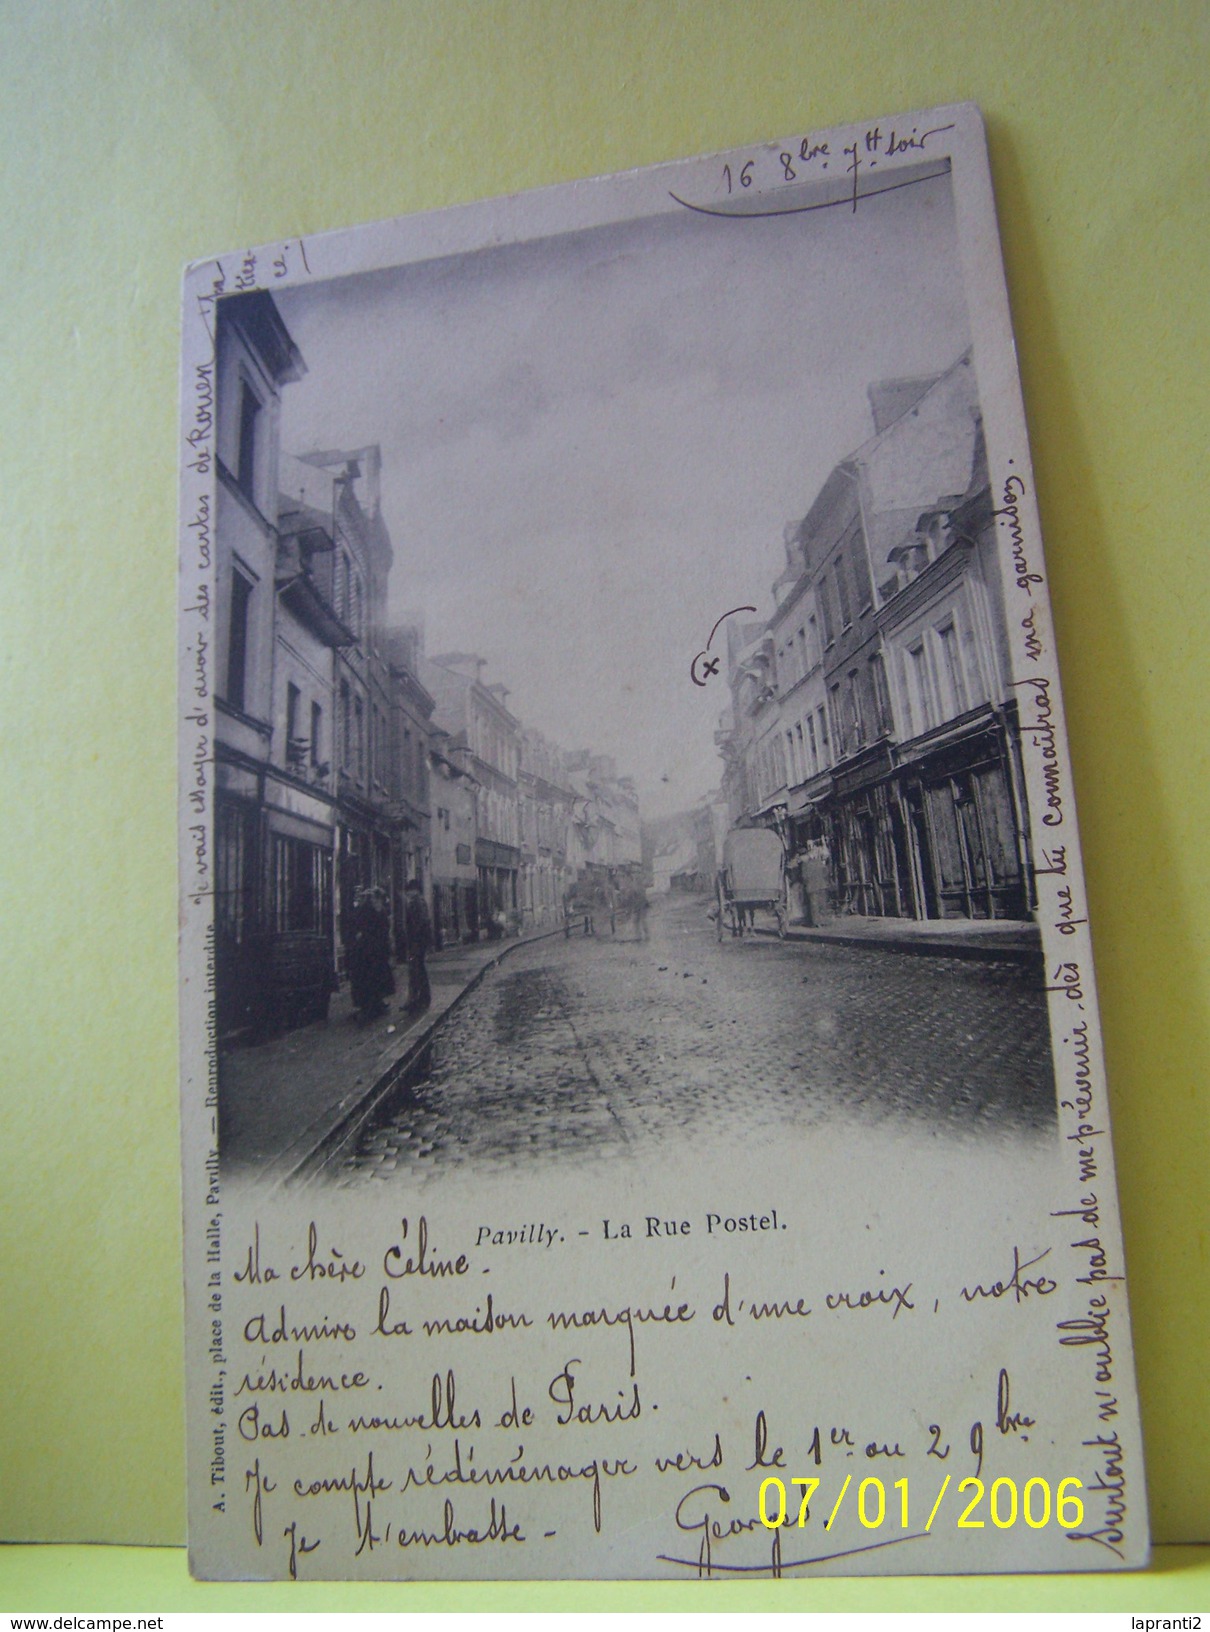 16 8bre 7H soir
Je vais essayer d'avoir des cartes de Rouen
tien-
ce.
Pavilly. - La Rue Postel.
Ma chère Céline.
Admire la maison marquée d'une croix, notre
résidence.
Pas de nouvelles de Paris.
Je compte rédéménager vers le 1er ou 2 9bre
Je t'embrasse - Georges.
Surtout n'oublie pas de me prévenir dès que tu connaîtras ma garnison.
(x
A. Tibout, édit., place de la Halle, Pavilly. — Reproduction interdite
07/01/2006
www.delcampe.net
lapranti2